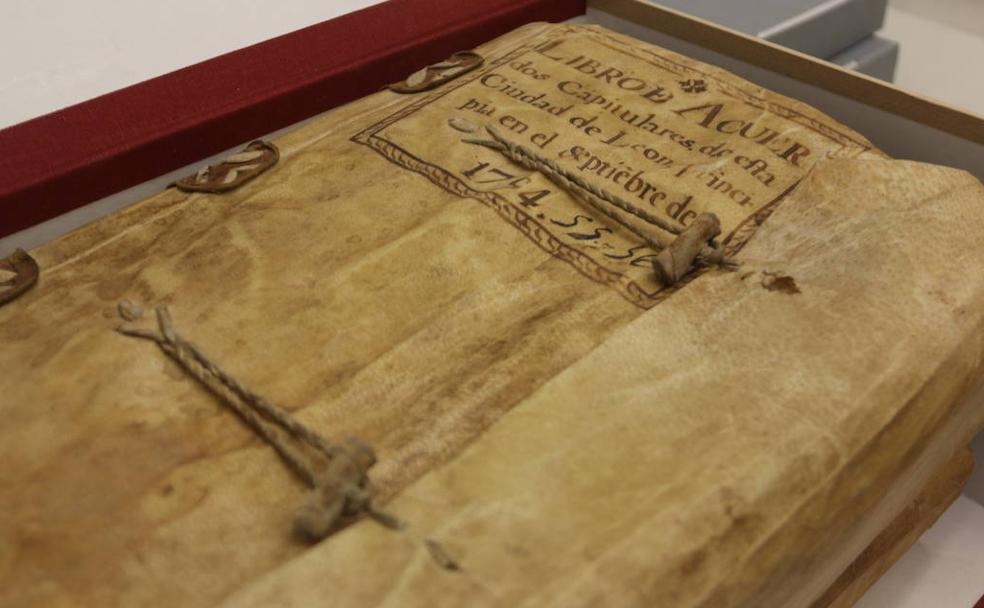 LIBRO DE ACUER
dos Capitulares, de esta
Ciudad de Leon, princi-
pia en el septiēbre de
17 4. 55-56